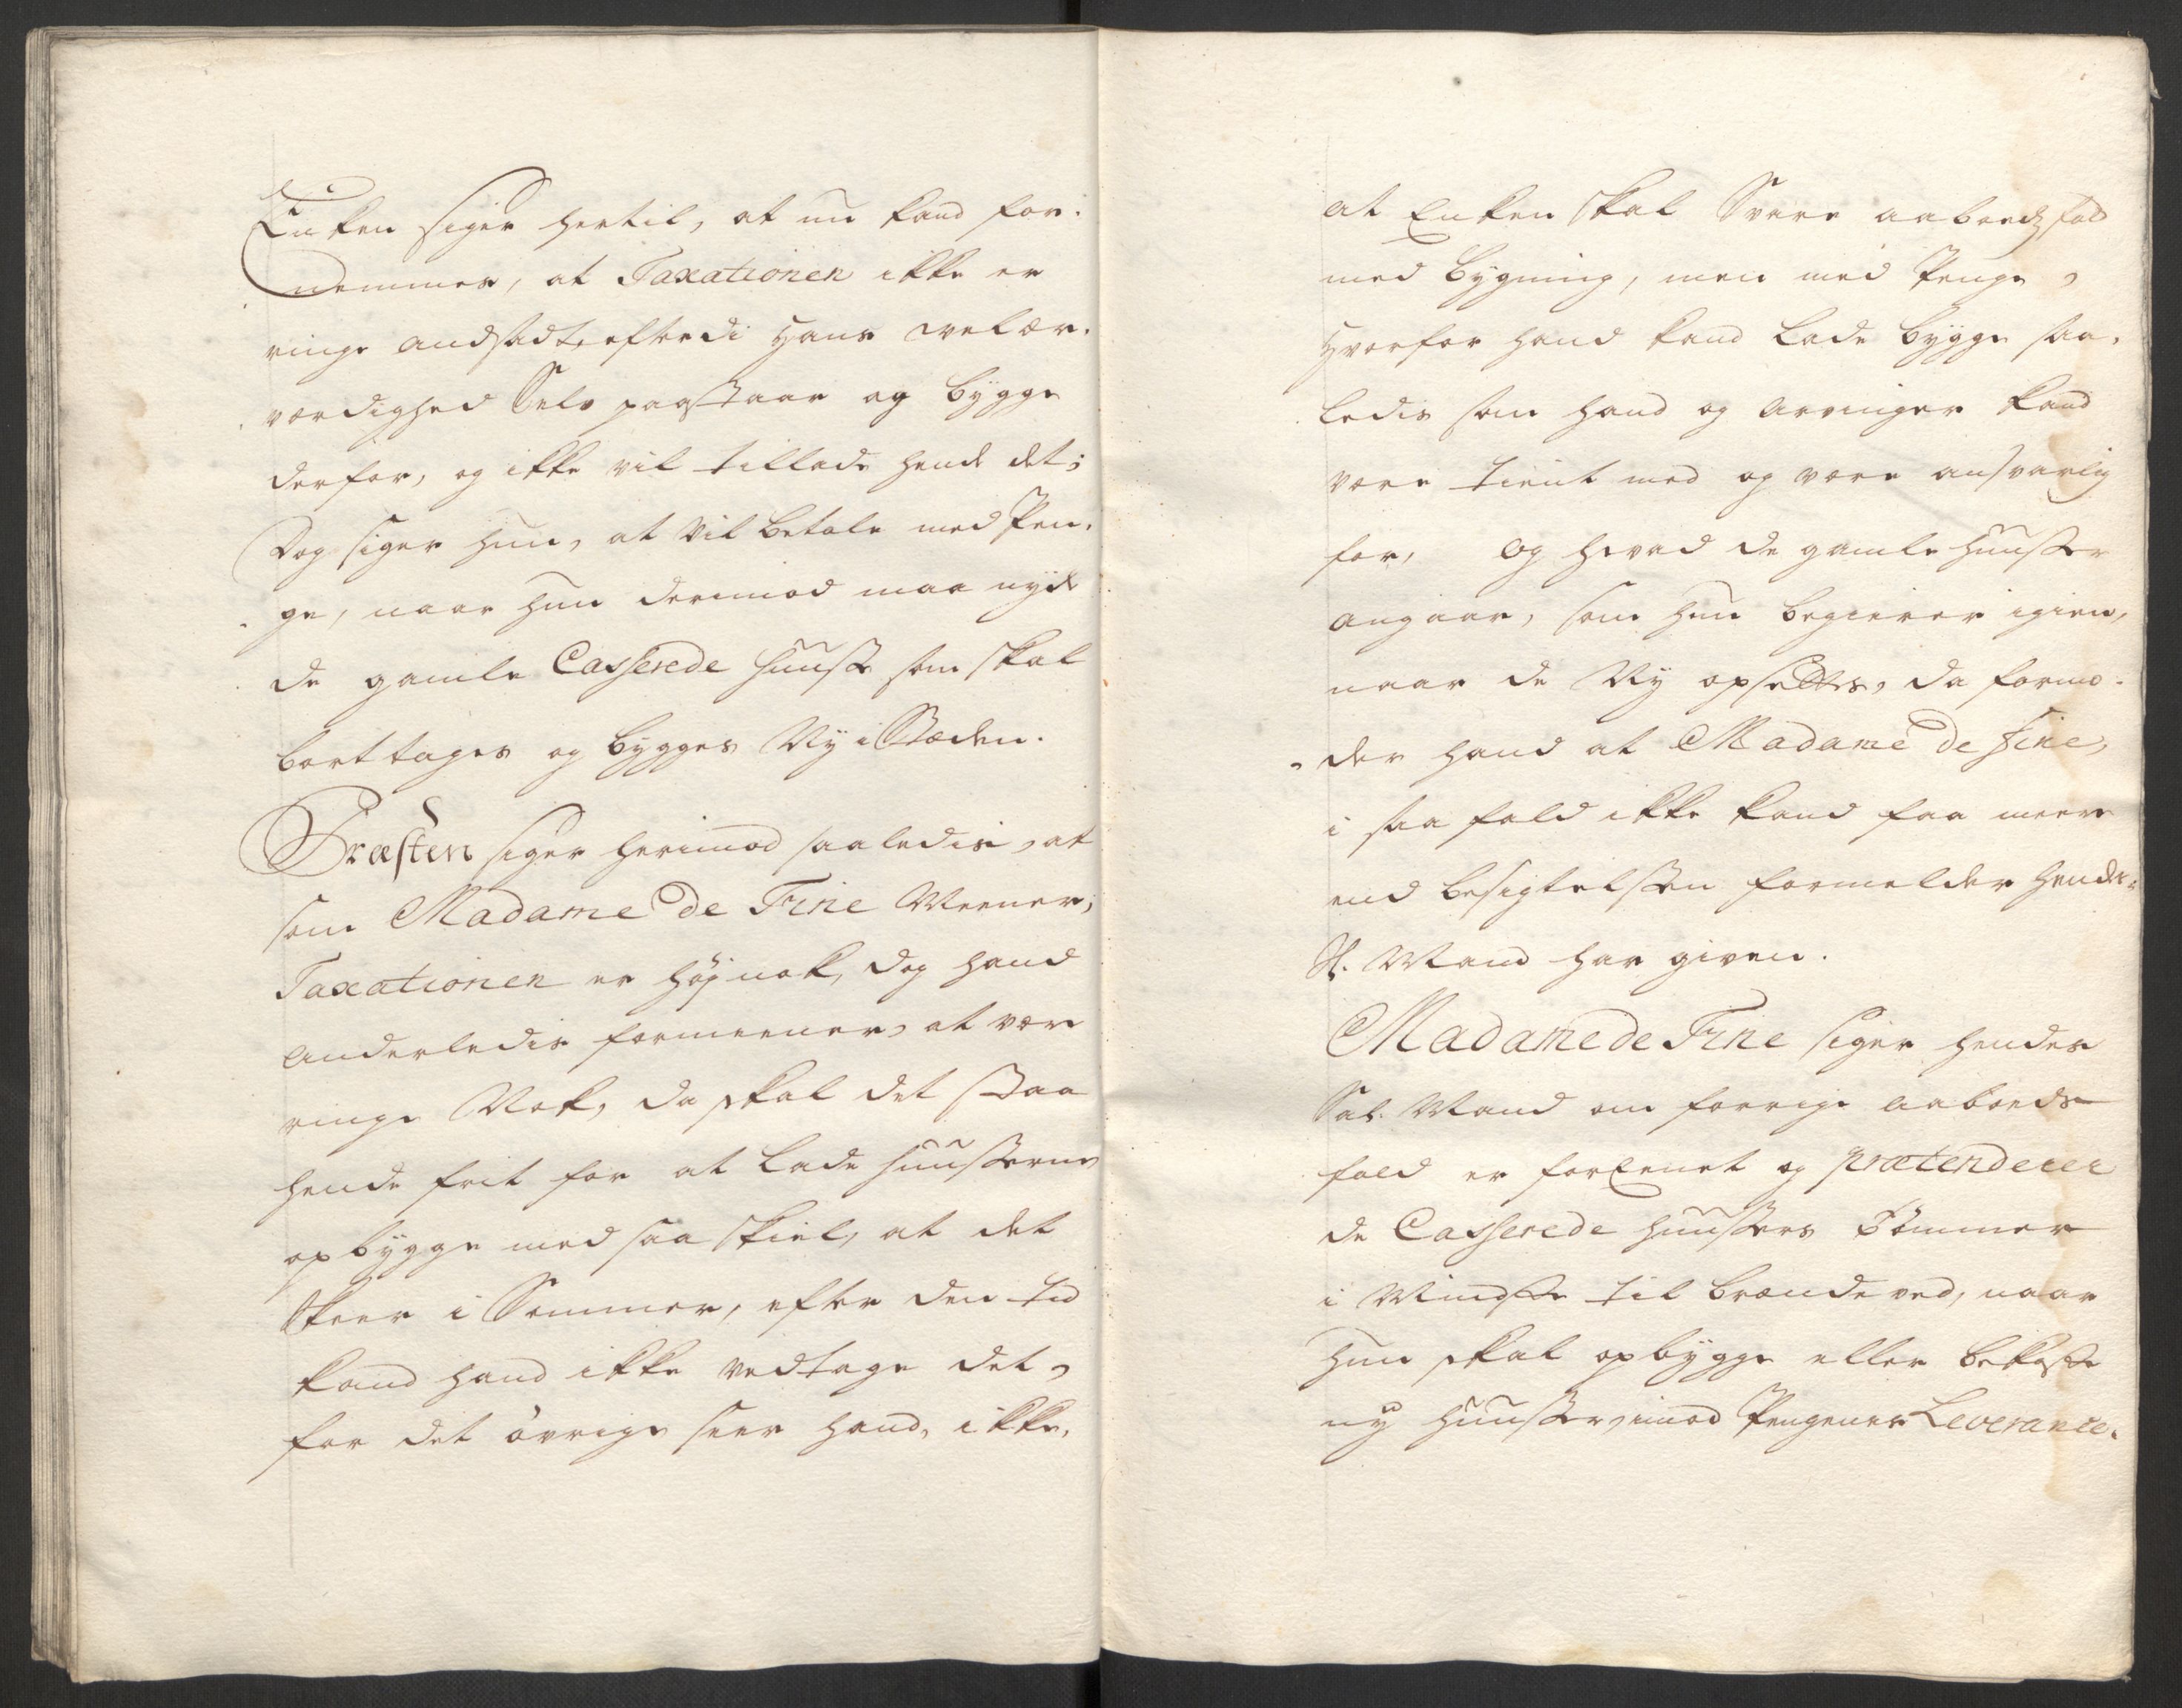 Enken siger hertil, at nu kand for-
nemmes, at Taxationen ikke er
ringe andsadt, eftterdi Hans velær-
værdighed Selv paastaar og bygge
derfor, og ikke vil tillade hende det;
Dog siger hun, at vil betale med Pen-
ge, naar hun derimod maa nyde
de gamle Casserede Huuse som skal
borttages og bygges Ny i Stæden.
Præsten siger herimod saaledis, at
som Madame de Fine Meener,
Taxationen er høj nok, dog hand
anderledis formeener, at være
ringe Nok, da skal det staa
hende frit for at lade Huusserne
opbygge med saa skiel, at det
skeer i Sommer, efter den tid
kand hand ikke vedtage det,
for det övrige seer hand, ikke,
at Enken skal Svare aaboedsfald
med bygning, men med Penge,
Hvorfor hand kand lade bygge saa-
ledis som hand og arvinger kand
være tient med og være ansvarlig
for, og hvad de gamle Huusser
angaar, som hun begierer igien,
naar de Ny opsettes, da formo-
der hand at Madame de Fine,
i saa fald ikke kand faa meere
end besigtelssen formelder hendes
Sl. Mand har given.
Madame de Fine siger hendes
Sal. Mand om forrige aaboeds-
fald er forEenet og prætenderer
de Casserede Huussers Tömmer
i Mindste til brændeved, naar
Hun skal opbygge eller bekoste
ny Huusser, imod Pengenes Leverance.